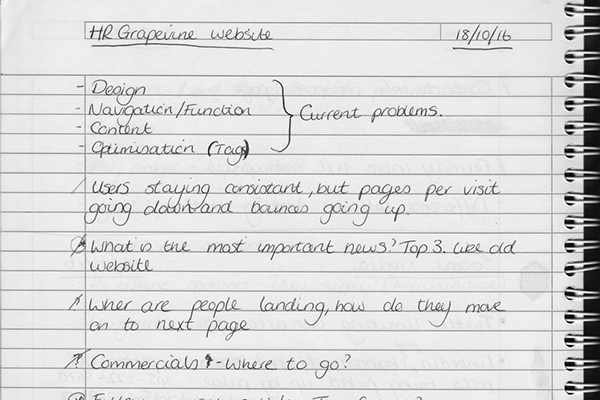 HR Grapevine website 18/10/16
- Design
- Navigation/Function
- Content
- Optimisation (Tags)
} Current problems.
Users staying consistant, but pages per visit
going down and bounces going up.
What is the most important news? Top 3. like old
website
Wher are people landing, how do they move
on to next page
Commercials - Where to go?